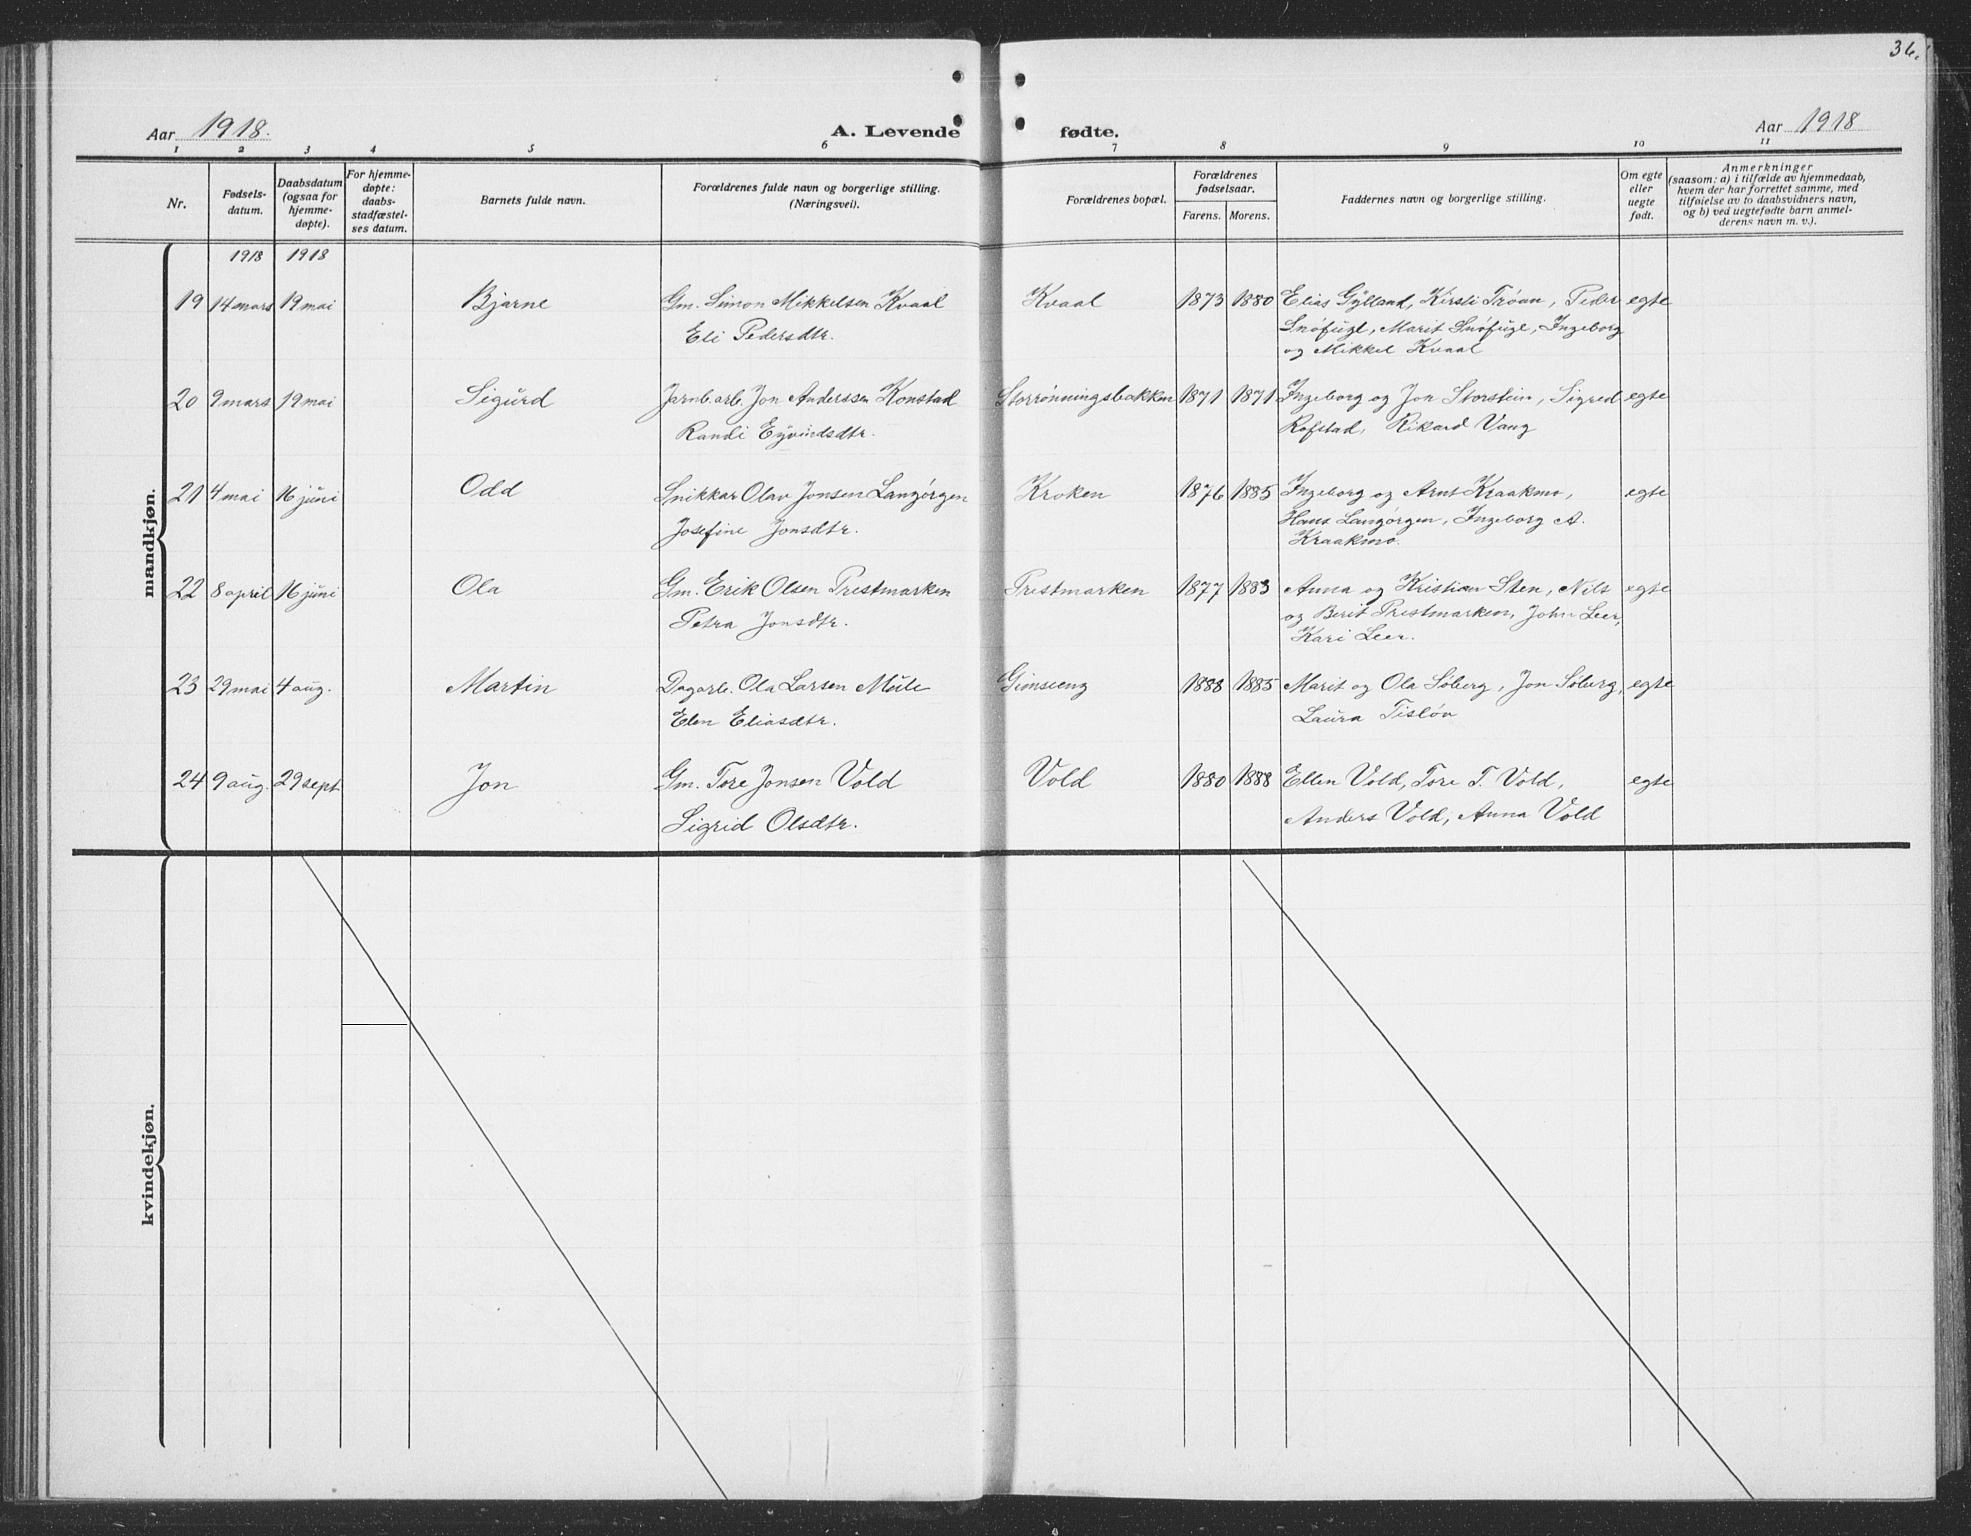 36.
Aar 1918. A. Levende fødte. Aar 1918
1 2 3 4 5 6 7 8 9 10 11
Nr. Fødsels-datum. Daabsdatum (ogsaa for hjemme-døpte). For hjemme-døpte: daabs-stadfæstel-ses datum. Barnets fulde navn. Forældrenes fulde navn og borgerlige stilling. (Næringsvei). Forældrenes bopæl. Forældrenes fødselsaar. Farens. Morens. Faddernes navn og borgerlige stilling. Om egte eller uegte født. Anmerkninger (saasom: a) i tilfælde av hjemmedaab, hvem der har forrettet samme, med tilføielse av to daabsvidners navn, og b) ved uegtefødte barn anmel-derens navn m. v.).
mandkjøn.
1918 1918
19 14 mars 19 mai Bjarne Gm. Simon Mikkelsen Kvaal Kvaal 1873 1880 Elias Gylland, Kirsti Trøan, Peder egte
Eli Pedersdtr. Snøfugl, Marit Snøfugl, Ingeborg
og Mikkel Kvaal
20 9 mars 19 mai Sigurd Jarnb.arb. Jon Anderssen Konstad Storrønningsbakken 1871 1871 Ingeborg og Jon Storstein, Sigrid egte
Randi Eyvindsdtr. Rofstad, Rikard Vang
21 4 mai 16 juni Odd Snikkar Olav Jonsen Langørgen Kroken 1876 1885 Ingeborg og Arnt Kraakmo, egte
Josefine Jonsdtr. Hans Langørgen, Ingeborg A.
Kraakmo.
22 8 april 16 juni Ola Gm. Erik Olsen Prestmarken Prestmarken 1877 1883 Anna og Kristian Sten, Nils egte
Petra Jonsdtr. og Berit Prestmarken, John Leer,
Kari Leer.
23 29 mai 4 aug. Martin Dagarb. Ola Larsen Møle Gimseeng 1888 1885 Marit og Ola Søberg, Jon Søberg, egte
Elen Eliasdtr. Laura Tisløv
24 9 aug. 29 sept. Jon Gm. Tore Jonsen Vold Vold 1880 1888 Ellen Vold, Tore T. Vold, egte
Sigrid Olsdtr. Anders Vold, Anna Vold
kvindekjøn.